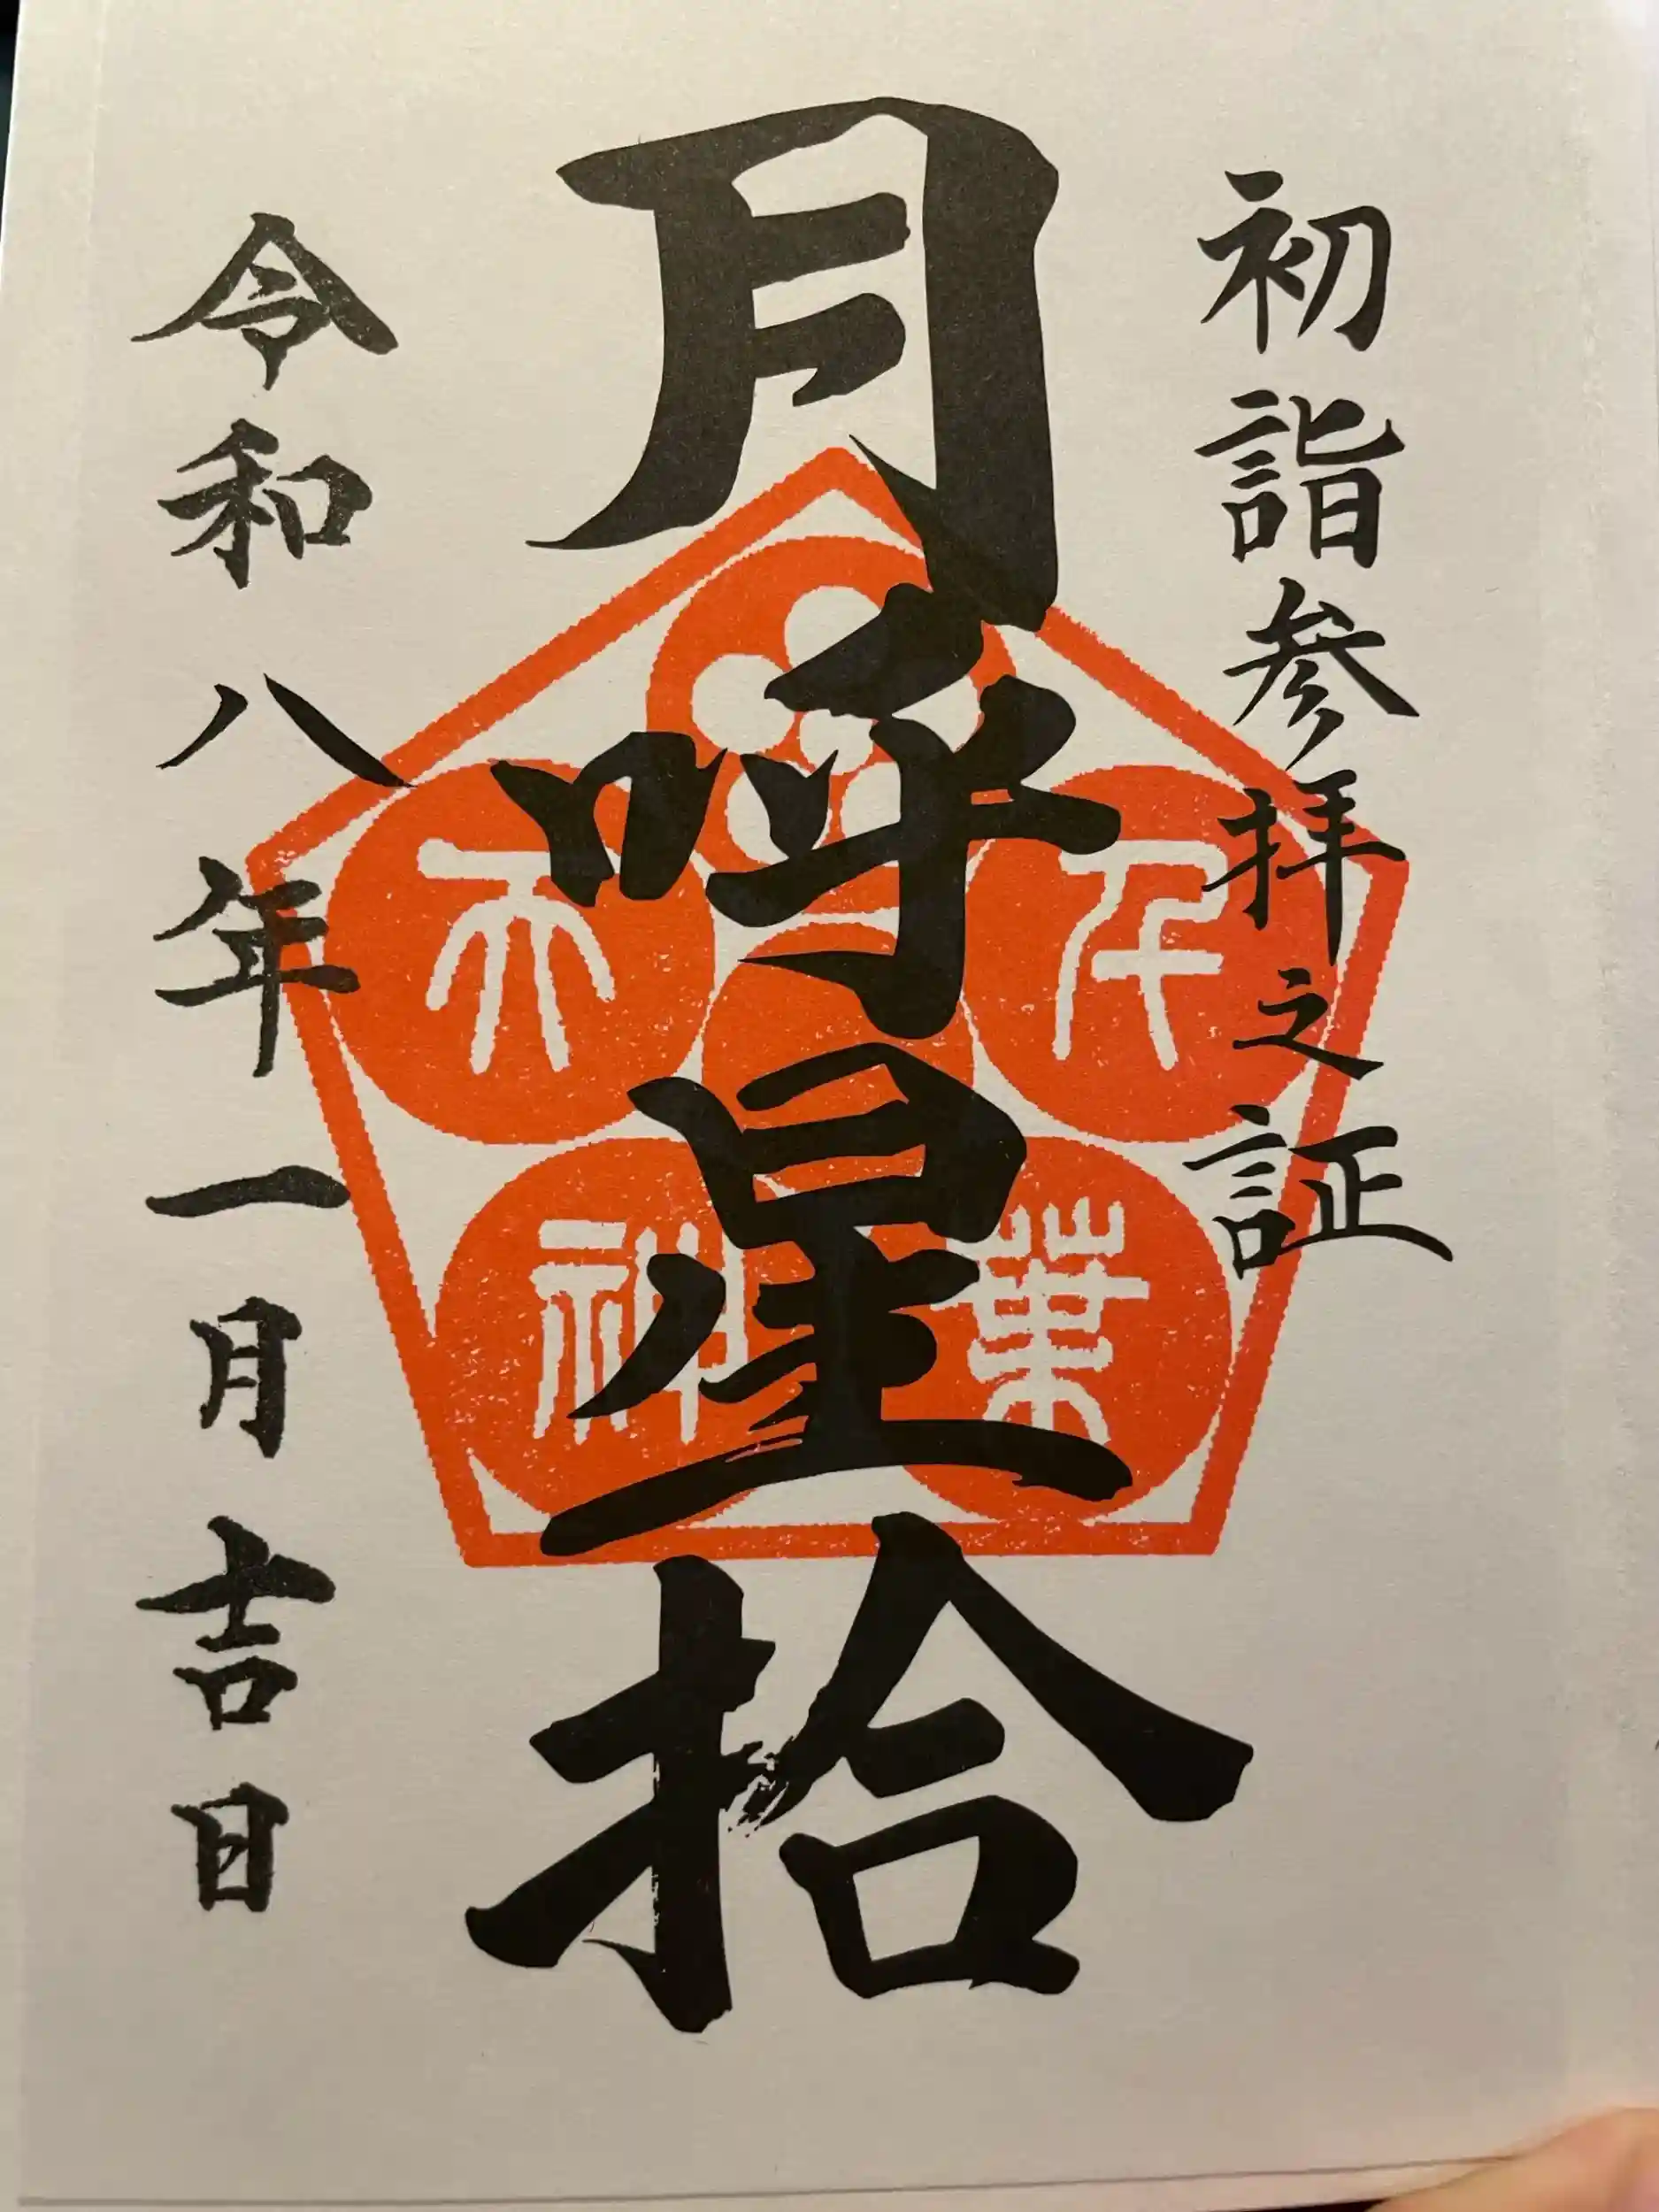 初詣参拝之証
月呼星拾
令和八年一月吉日
千葉
天神